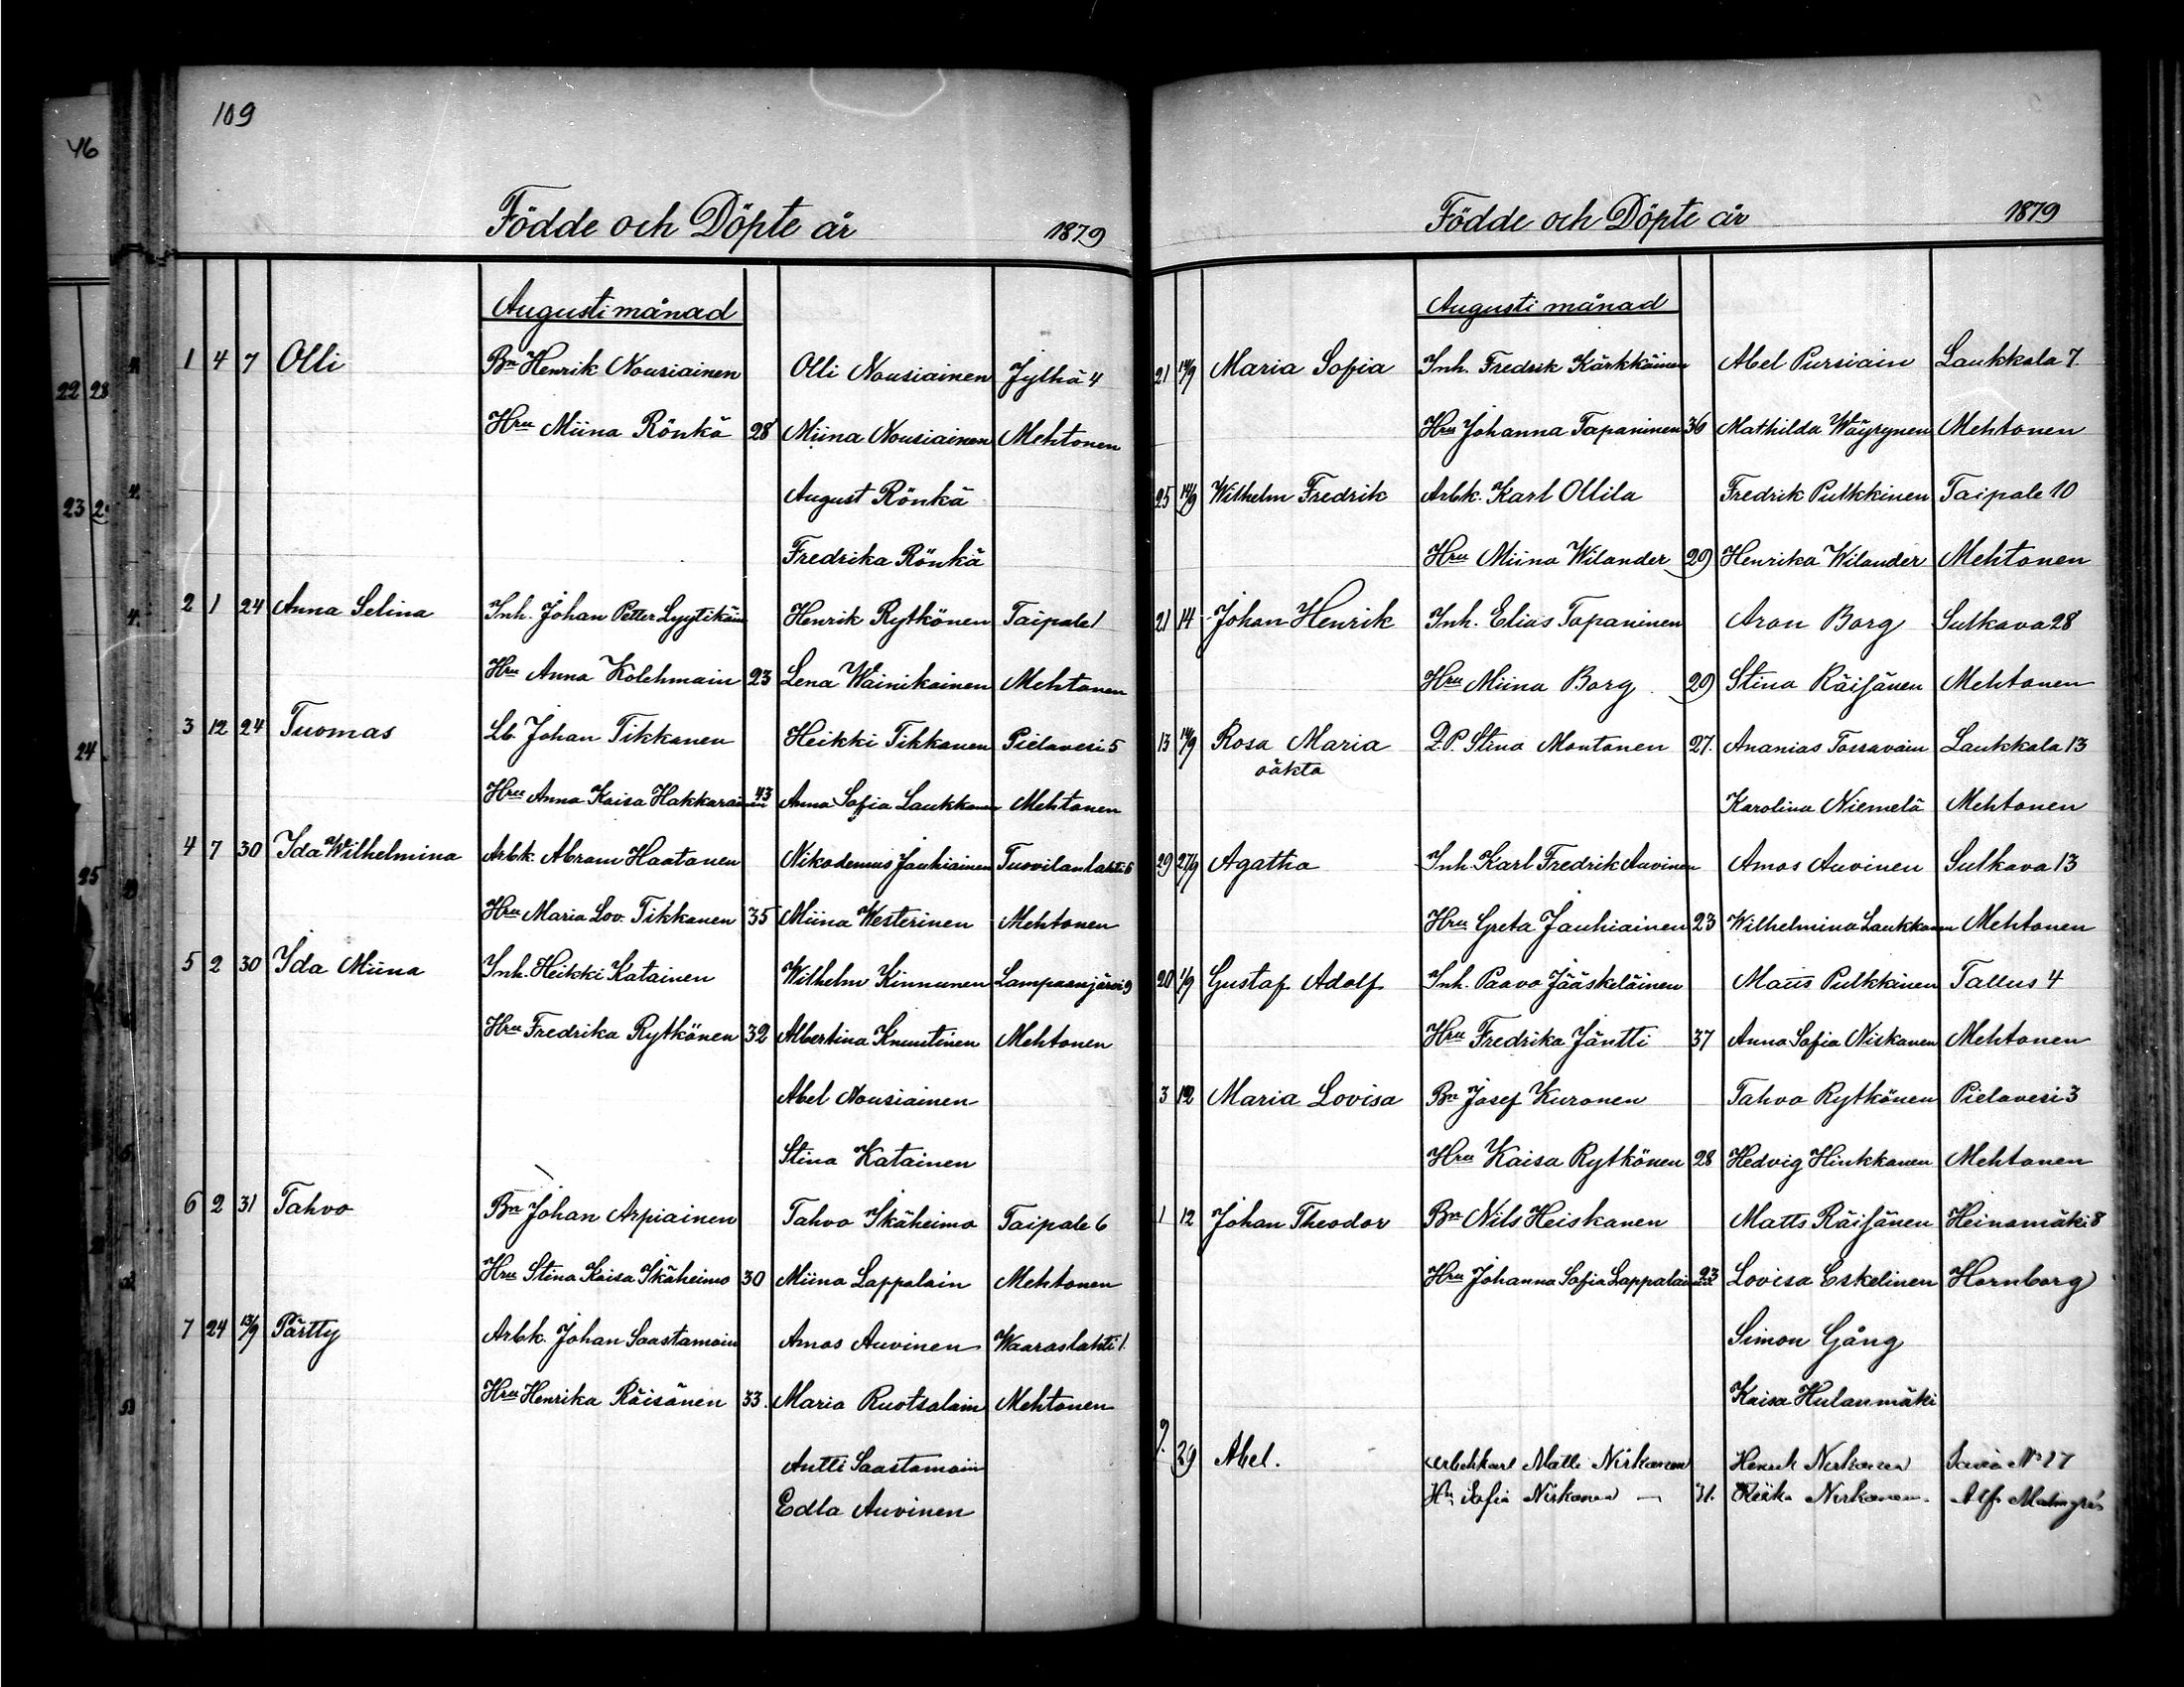 109
46
Födde och Döpte år 1879
Augusti månad
22 28
23
24
25
1 4 7 Olli Bn Henrik Nousiainen Olli Nousiainen Jylhä 4
Hru Miina Rönkä 28 Miina Nousiainen Mehtonen
August Rönkä
Fredrika Rönkä
2 1 24 Anna Selina Inh. Johan Petter Lyytikäin Henrik Rytkönen Taipale 1
Hru Anna Kolehmain 23 Lena Wainikainen Mehtonen
3 12 24 Tuomas Lb. Johan Tikkanen Heikki Tikkanen Pielavesi 5
Hru Anna Kaisa Hakkarainen 43 Anna Sofia Laukkanen Mehtonen
4 7 30 Ida Wilhelmina Arbk. Abram Haatanen Nikodemus Jauhiainen Tuovilanlahti 6
Hru Maria Lov. Tikkanen 35 Miina Westerinen Mehtonen
5 2 30 Ida Miina Inh. Heikki Katainen Wilhelm Kinnunen Lampaanjärvi 9
Hru Fredrika Rytkönen 32 Albertina Knuutinen Mehtonen
Abel Nousiainen
Stina Katainen
6 2 31 Tahvo Bn Johan Arpiainen Tahvo Ikäheimo Taipale 6
Hru Stina Kaisa Ikäheimo 30 Miina Lappalain Mehtonen
7 24 13/9 Pärtty Arbk. Johan Saastamoin Amos Auvinen Waaraslahti 1
Hru Henrika Räisänen 33. Maria Ruotsalain Mehtonen
Antti Saastamoin
Edla Auvinen
Födde och Döpte år 1879
Augusti månad
21 14/9 Maria Sofia Inh. Fredrik Kärkkäinen Abel Pursiain Laukkala 7.
Hru Johanna Tapaninen 36 Mathilda Wäyrynen Mehtonen
25 14/9 Wilhelm Fredrik Arbk. Karl Ollila Fredrik Pulkkinen Taipale 10
Hru Miina Wilander 29 Henrika Wilander Mehtonen
21 14 Johan Henrik Inh. Elias Tapaninen Aron Borg Sulkava 28
Hru Miina Borg 29 Stina Räisänen Mehtonen
13 14/9 Rosa Maria Q.P. Stina Montonen 27. Ananias Tossavain Laukkala 13
oäkta Karolina Niemelä Mehtonen
29 27/9 Agatha Inh. Karl Fredrik Auvinen Amos Auvinen Sulkava 13
Hru Greta Jauhiainen 23 Wilhelmina Laukkanen Mehtonen
20 1/9 Gustaf Adolf Inh. Paavo Jääskeläinen Maus Pulkkinen Tallus 4
Hru Fredrika Jäntti 37 Anna Sofia Niskanen Mehtonen
3 12 Maria Lovisa Bn Josef Kuronen Tahvo Rytkönen Pielavesi 3
Hru Kaisa Rytkönen 28 Hedvig Hinkkanen Mehtonen
1 12 Johan Theodor Bn Nils Heiskanen Matts Räisänen Heinämäki 8
Hru Johanna Sofia Lappalainen 23 Lovisa Eskelinen Hornborg
Simon Gång
Kaisa Hulanmäki
9. 29 Abel. Arbetskarl Matts Niskanen Henrik Niskanen Savia No 27
Hu Sofia Niskanen — 31. Niskanen. Alf. Malmgrén